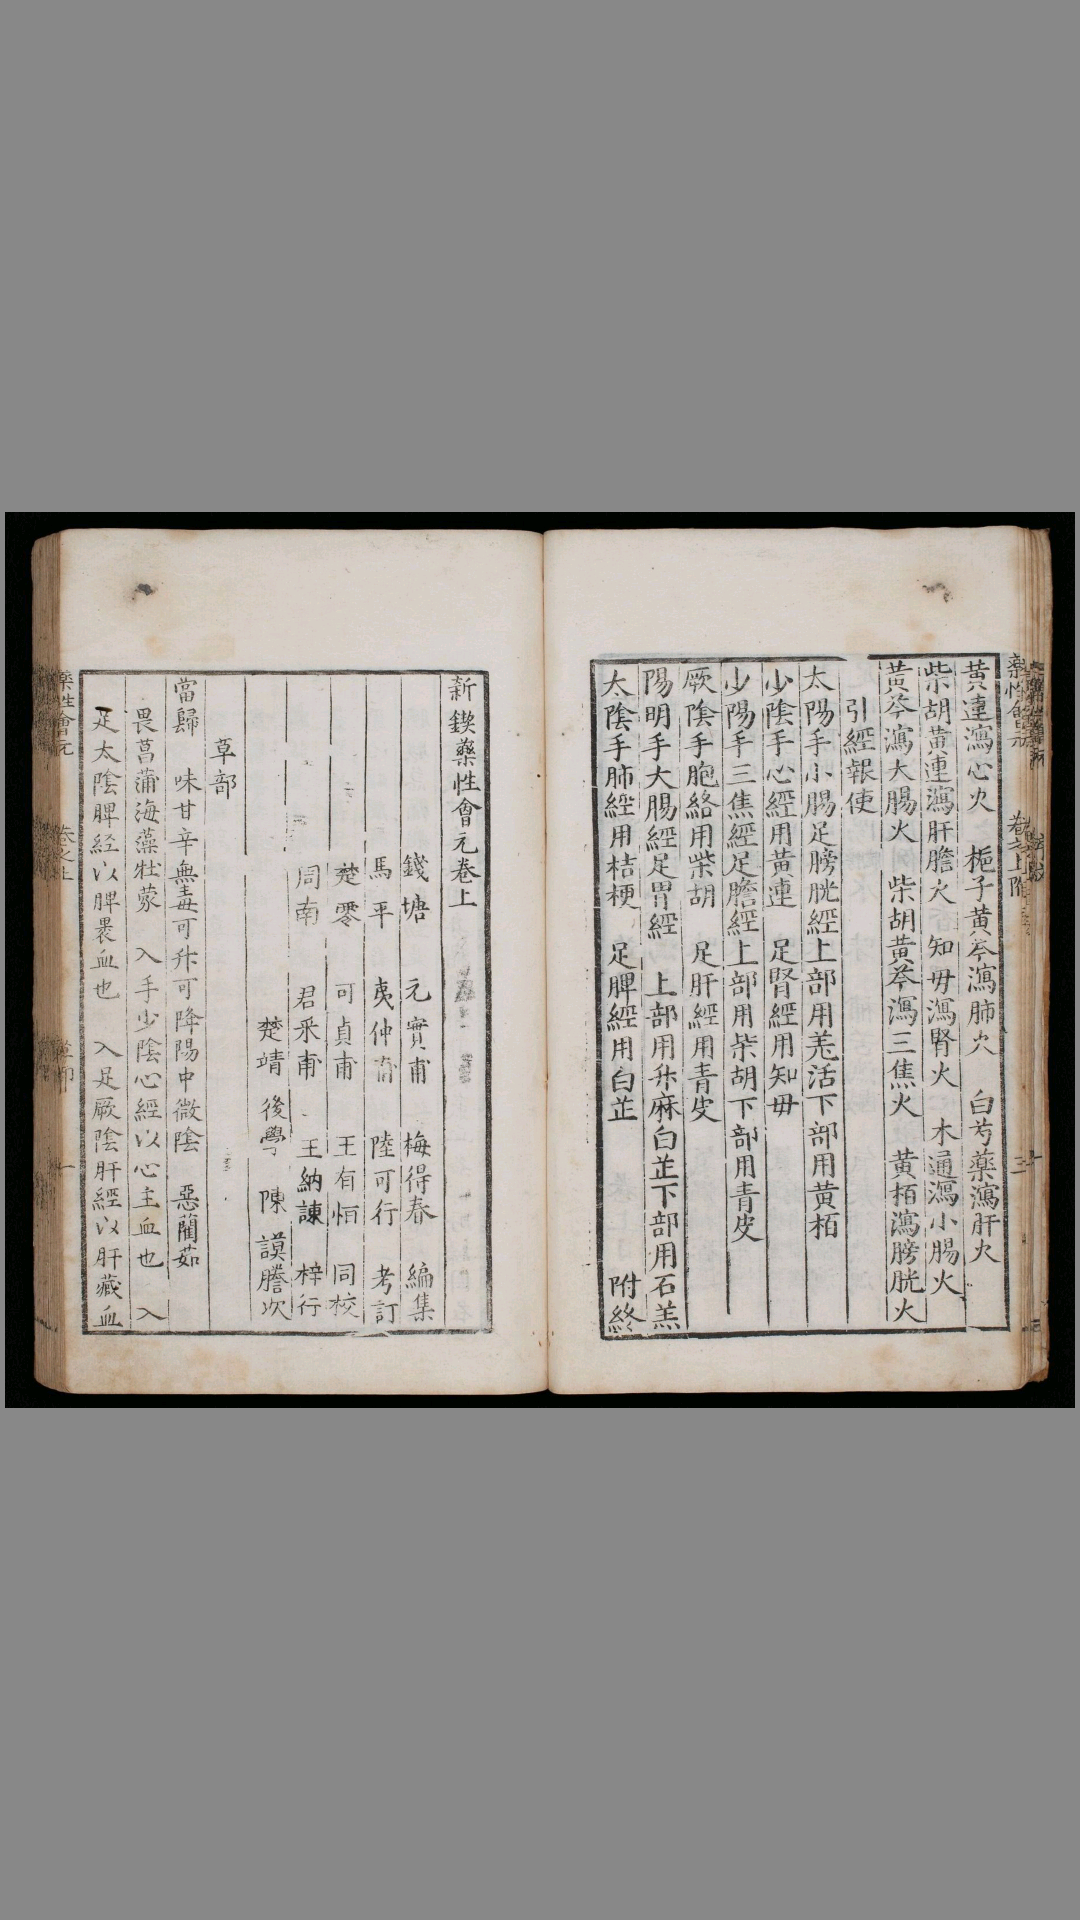 黃連瀉心火 梔子黃芩瀉肺火 白芍藥瀉肝火
柴胡黃連瀉肝膽火 知毋瀉腎火 木通瀉小腸火
黃芩瀉大腸火 柴胡黃芩瀉三焦火 黃栢瀉膀胱火
引經報使
太陽手小腸足膀胱經上部用羗活下部用黃栢
少陰手心經用黃連 足腎經用知毋
少陽手三焦經足膽經上部用柴胡下部用青皮
厥陰手胞絡用柴胡 足肝經用青皮
陽明手大腸經足胃經 上部用升麻白芷下部用石羔
太陰手肺經用桔梗 足脾經用白芷 附終
新鍥藥性會元卷上
錢塘 元實甫 梅得春 編集
馬平 夷仲甫 陸可行 考訂
楚零 可貞甫 王有恒 同校
周南 君采甫 王納諫 梓行
楚靖 後學 陳謨謄次
草部
當歸 味甘辛無毒可升可降陽中微陰 惡䕡茹
畏菖蒲海藻牡蒙 入手少陰心經以心主血也 入
足太陰脾經以脾裹血也 入足厥陰肝經以肝藏血
藥性會元 卷之上 一